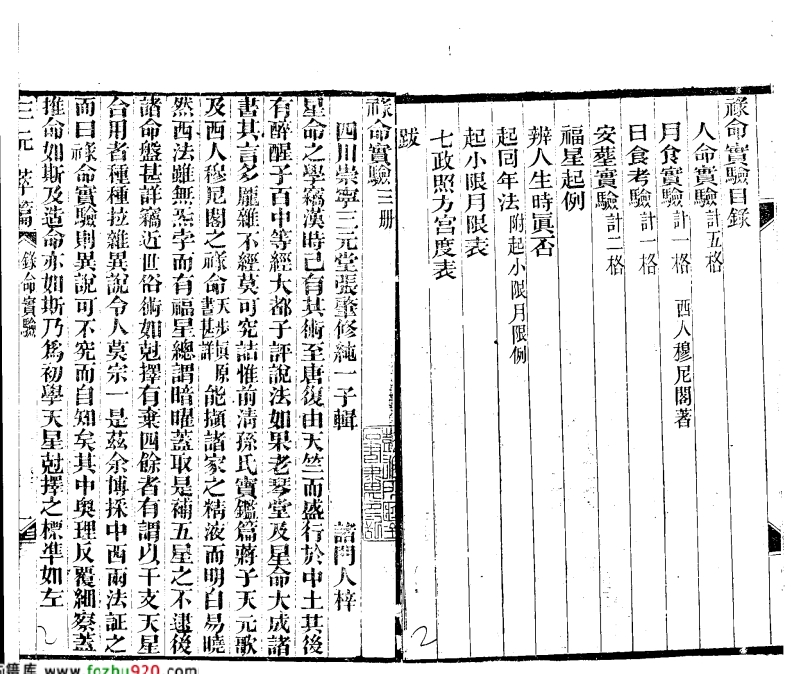 祿命實驗目錄
人命實驗計五格
月食實驗計一格 西人穆尼閣著
日食考驗計一格
安塟實驗計二格
福星起例
辨人生時眞否
起同年法附起小限月限例
起小限月限表
七政照方宮度表
跋
2
祿命實驗三册
四川崇寧三元堂張肇修純一子輯 諸門人梓
星命之學竊漢時已有其術至唐復由天竺而盛行於中土其後
有醉醒子百中等經大都子評說法如果老琴堂及星命大成諸
書其言多龐雜不經莫可究詰惟前淸孫氏寶鑑篇蔣子天元歌
及西人穆尼閣之祿命天步眞原書甚詳能擷諸家之精液而明白易曉
然西法雖無炁孛而有福星總謂暗曜蓋取是補五星之不逮後
諸命盤甚詳竊近世俗術如尅擇有棄四餘者有謂以干支天星
合用者種種拉雜異說令人莫宗一是茲余博採中西兩法証之
而曰祿命實驗則異說可不究而自知矣其中奧理反覆細察蓋
推命如斯及造命亦如斯乃爲初學天星尅擇之標準如左
三元萃篇 祿命實驗
2
籍库 www.fozhu920.com